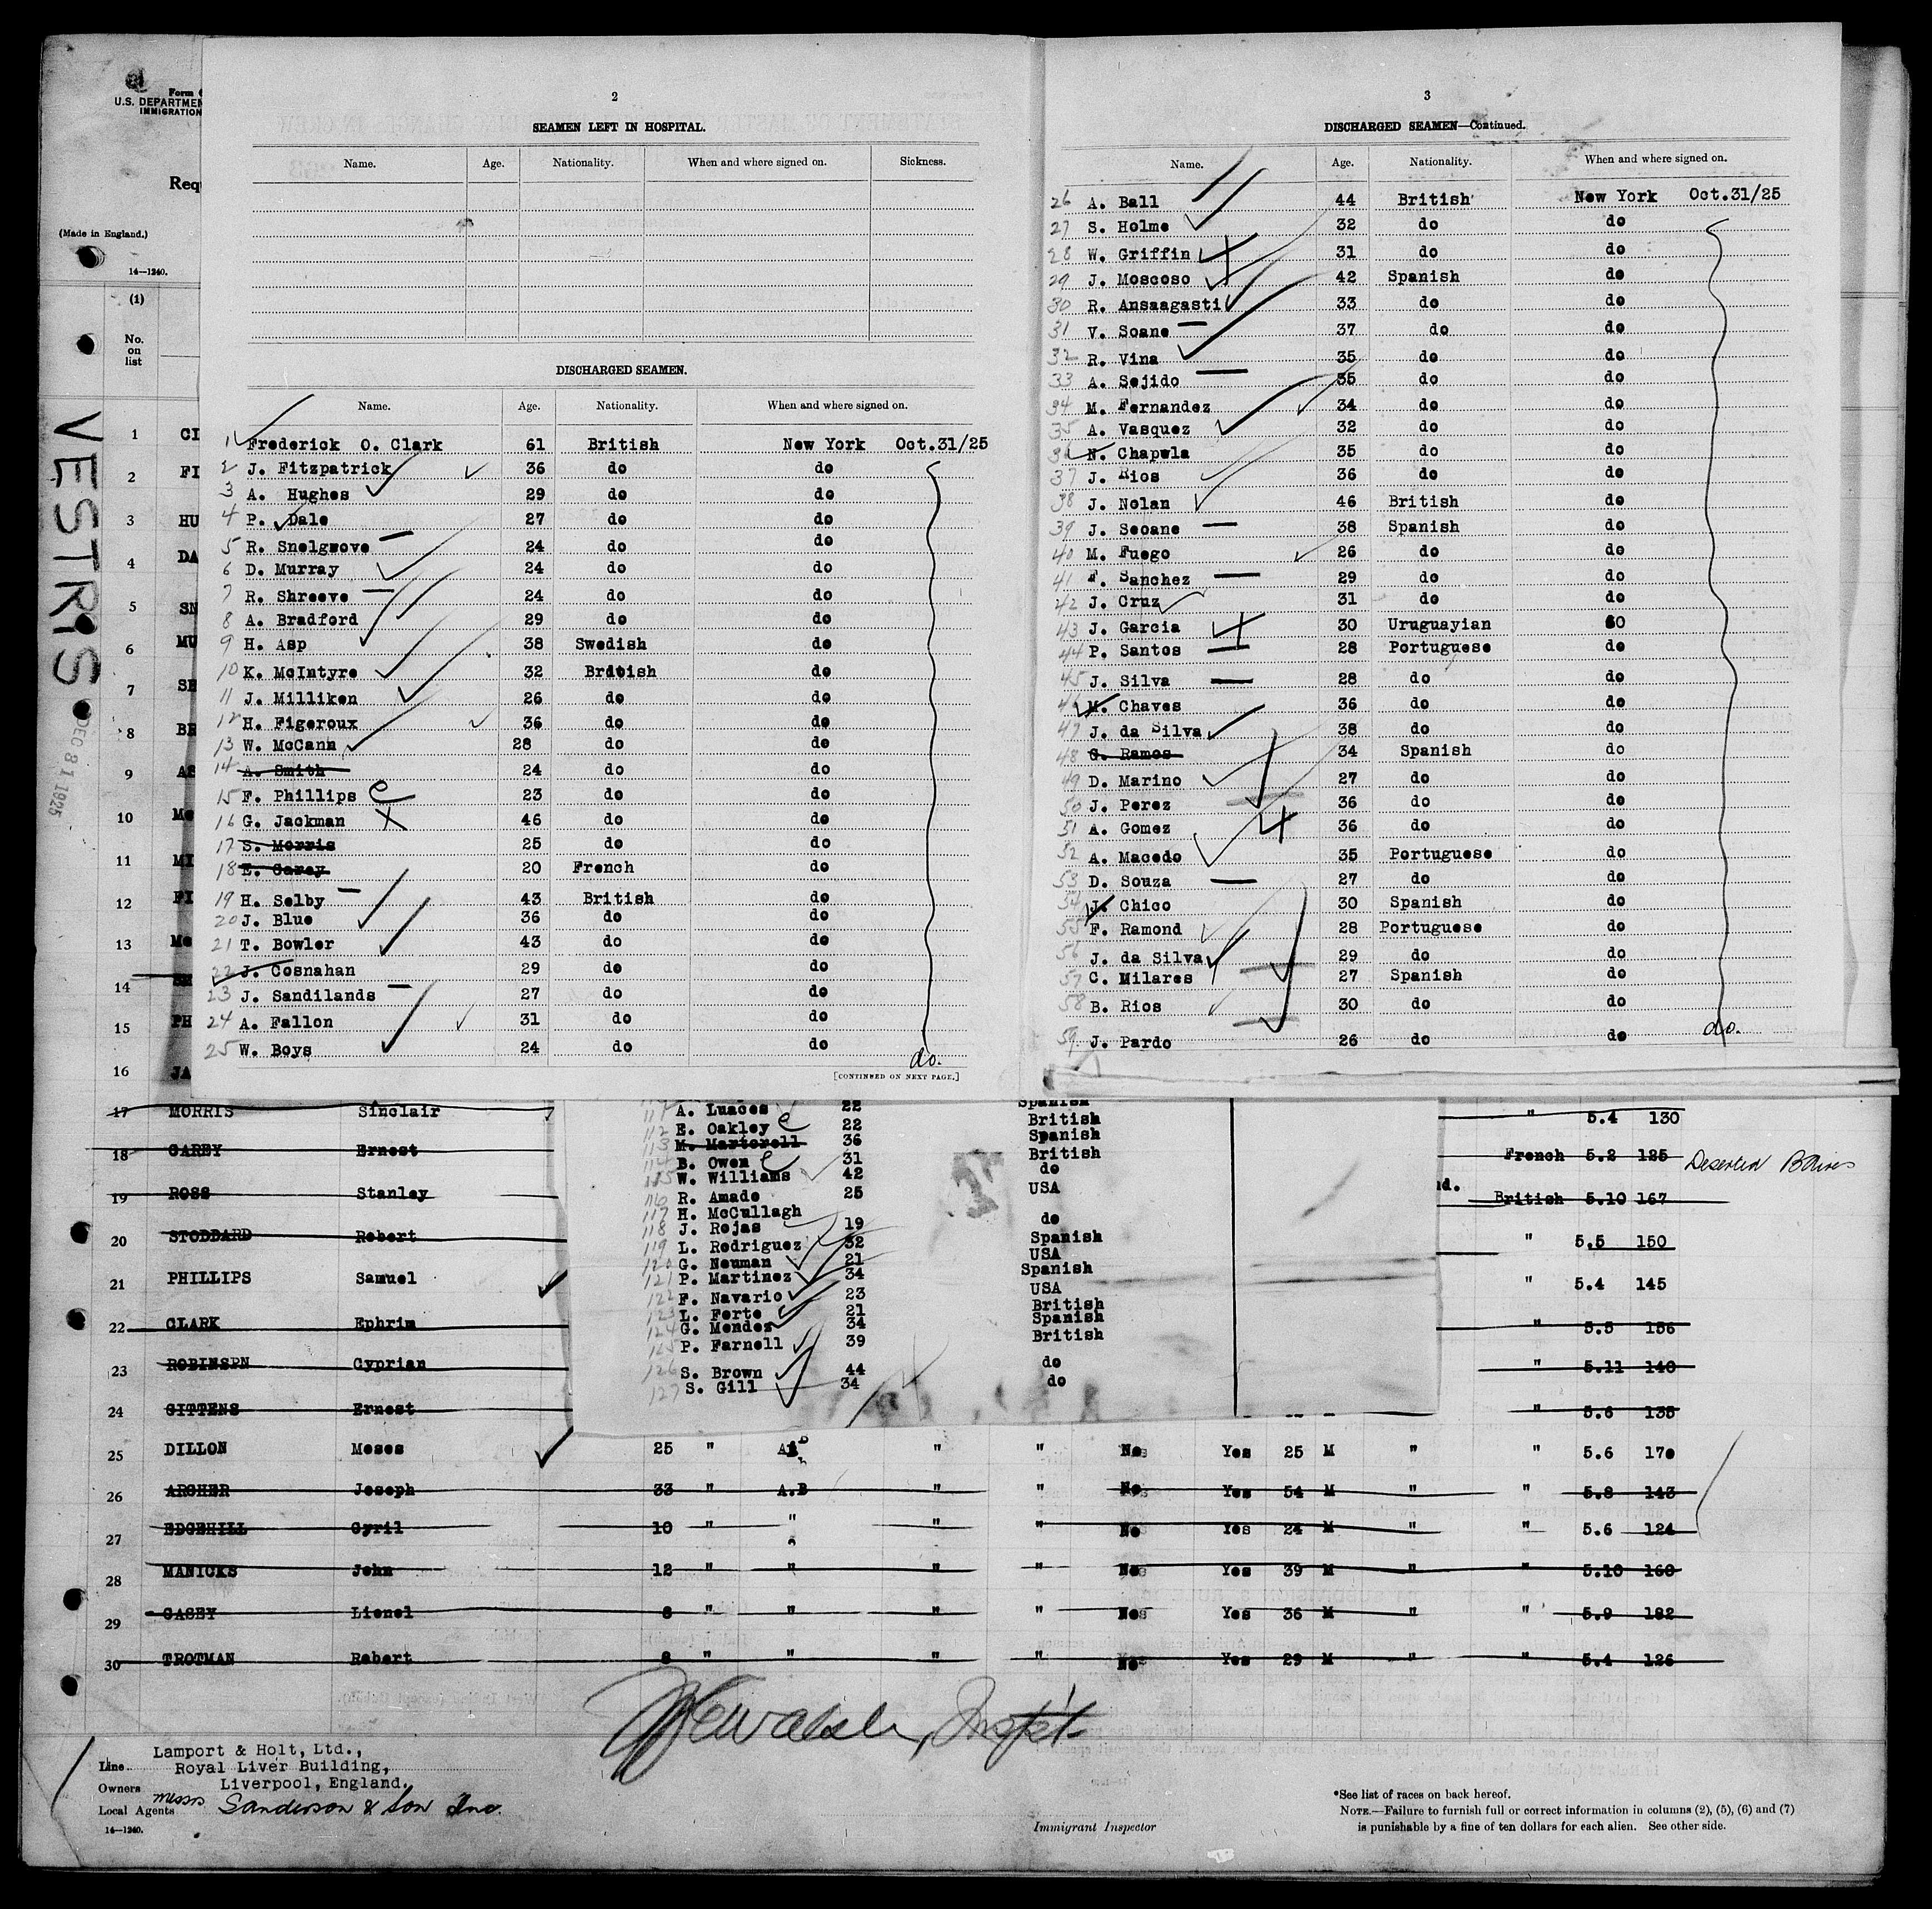 Form
U.S. DEPARTMEN
IMMIGRATION
Req
(Made in England.)
14—1240.
(1)
No. on list
VESTRIS
DEC 31 1925
2
SEAMEN LEFT IN HOSPITAL.
Name. Age. Nationality. When and where signed on. Sickness.
DISCHARGED SEAMEN.
Name. Age. Nationality. When and where signed on.
1 Frederick O. Clark 61 British New York Oct.31/25
2 J. Fitzpatrick 36 do do
3 A. Hughes 29 do do
4 P. Dale 27 do do
5 R. Snelgwove 24 do do
6 D. Murray 24 do do
7 R. Shreeve 24 do do
8 A. Bradford 29 do do
9 H. Asp 38 Swedish do
10 K. McIntyre 32 British do
11 J. Milliken 26 do do
12 H. Figeroux 36 do do
13 W. McCann 28 do do
14 A. Smith 24 do do
15 F. Phillips 23 do do
16 G. Jackman 46 do do
17 S. Morris 25 do do
18 E. Carey 20 French do
19 H. Selby 43 British do
20 J. Blue 36 do do
21 T. Bowler 43 do do
22 J. Cosnahan 29 do do
23 J. Sandilands 27 do do
24 A. Fallon 31 do do
25 W. Boys 24 do do do.
[CONTINUED ON NEXT PAGE.]
3
DISCHARGED SEAMEN—Continued.
Name. Age. Nationality. When and where signed on.
26 A. Ball 44 British New York Oct.31/25
27 S. Holme 32 do do
28 W. Griffin 31 do do
29 J. Moscoso 42 Spanish do
30 R. Ansaagasti 33 do do
31 V. Soane 37 do do
32 R. Vina 35 do do
33 A. Sejido 35 do do
34 M. Fernandez 34 do do
35 A. Vasquez 32 do do
36 N. Chapela 35 do do
37 J. Rios 36 do do
38 J. Nolan 46 British do
39 J. Seoane 38 Spanish do
40 M. Fuego 26 do do
41 F. Sanchez 29 do do
42 J. Cruz 31 do do
43 J. Garcia 30 Uruguayian do
44 P. Santos 28 Portuguese do
45 J. Silva 28 do do
46 M. Chaves 36 do do
47 J. da Silva 38 do do
48 G. Ramos 34 Spanish do
49 D. Marino 27 do do
50 J. Perez 36 do do
51 A. Gomez 36 do do
52 A. Macedo 35 Portuguese do
53 D. Souza 27 do do
54 J. Chico 30 Spanish do
55 F. Ramond 28 Portuguese do
56 J. da Silva 29 do do
57 C. Milares 27 Spanish do
58 B. Rios 30 do do
59 J. Pardo 26 do do do.
1 CI
2 FI
3 HU
4 DA
5 SN
6 MU
7 SH
8 BR
9 AS
10 Mc
11 MI
12 FI
13 Mc
14 SM
15 PH
16 JA
111 A. Luaces 22 Spanish
112 E. Oakley 22 British
113 M. Martorell 36 Spanish
114 B. Owen 31 British
115 W. Williams 42 do
116 R. Amado 25 USA
117 H. McCullagh do
118 J. Rojas 19 Spanish
119 L. Rodriguez 32 USA
120 G. Neuman 21 Spanish
121 P. Martinez 34 USA
122 F. Navario 23 British
123 L. Forte 21 Spanish
124 G. Mendez 34 British
125 P. Farnell 39
126 S. Brown 44 do
127 S. Gill 34 do
17 MORRIS Sinclair " 5.4 130
18 CAREY Ernest French 5.2 125 Deserted BAires
19 ROSS Stanley nd. British 5.10 167
20 STODDARD Robert " 5.5 150
21 PHILLIPS Samuel " 5.4 145
22 CLARK Ephrim " 5.5 156
23 ROBINSPN Cyprian " 5.11 140
24 GITTENS Ernest " 5.6 135
25 DILLON Moses 25 " AB " " No Yes 25 M " " 5.6 170
26 ARCHER Joseph 33 " A.B " " No Yes 54 M " " 5.8 143
27 EDGEHILL Cyril 10 " " " " No Yes 24 M " " 5.6 124
28 MANICKS John 12 " " " " No Yes 39 M " " 5.10 160
29 CASEY Lionel 8 " " " " No Yes 36 M " " 5.9 182
30 TROTMAN Robert 8 " " " " No Yes 29 M " " 5.4 126
Line Lamport & Holt, Ltd.,
Royal Liver Building,
Owners Liverpool, England.
Local Agents Messrs Sanderson & Son Inc.
14—1240.
Immigrant Inspector
*See list of races on back hereof.
NOTE.—Failure to furnish full or correct information in columns (2), (5), (6) and (7)
is punishable by a fine of ten dollars for each alien. See other side.